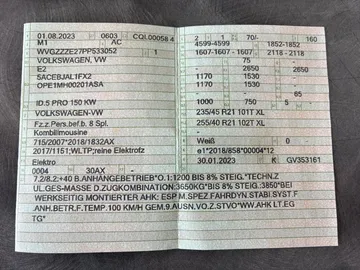 01.08.2023 0603 CQL00058 4
M1 AC
WVGZZZE27PP533052 1
VOLKSWAGEN, VW
E2
SACEBJAL1FX2
OPE1MH00201ASA
ID.5 PRO 150 KW
VOLKSWAGEN-VW
Fz.z.Pers.bef.b. 8 Spl.
Kombilimousine
715/2007*2018/1832AX
2017/1151;WLTP;reine Elektrofz
Elektro
0004 30AX —
2 1 70/- 160
4599-4599 1852-1852
1607-1607 2118-2118
— 75 —
— 2650 2650
1170 1530 —
1170 1530 —
— — 65
1000 750 5 —
235/45 R21 101T XL
255/40 R21 102T XL
—
Weiß 0
e1*2018/858*00004*12
30.01.2023 K GV353161
7.2/8.2:+40 B.ANHÄNGEBETRIEB*O.1:1200 BIS 8% STEIG.*TECHN.Z
UL.GES-MASSE D.ZUGKOMBINATION:3650KG*BIS 8% STEIG.:3850*BEI
WERKSEITIG MONTIERTER AHK: ESP M.SPEZ.FAHRDYN.STABI.SYST.F
ANH.BETR.F.TEMP.100 KM/H GEM.9.AUSN.VO.Z.STVO*WW.AHK LT.EG
TG*